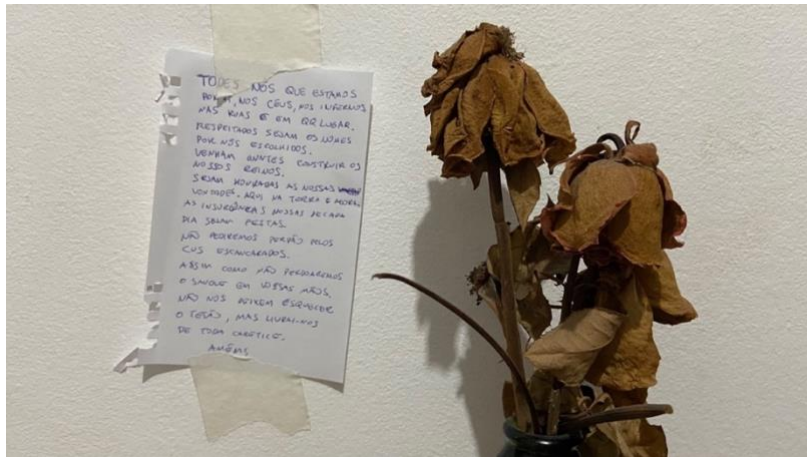 TODES NÓS QUE ESTAMOS
POR AÍ, NOS CÉUS, NOS INFERNOS
NAS RUAS E EM QQ LUGAR.
RESPEITADOS SEJAM OS NOMES
POR NÓS ESCOLHIDOS.
VENHAM JUNTES CONSTRUIR OS
NOSSOS REINOS.
SEJAM HONRADAS AS NOSSAS
VONTADES. AQUI NA TERRA E
AS INSURGÊNCIAS NOSSAS DE CADA
DIA SEJAM FEITAS.
NÃO PEDIREMOS PERDÃO PELOS
CUS ESCANCARADOS.
ASSIM COMO NÃO PERDOAREMOS
O SANGUE EM VOSSAS MÃOS.
NÃO NOS DEIXEM ESQUECER
O TESÃO, MAS LIVRAI-NOS
DE TODA CARETICE.
AMÉMS